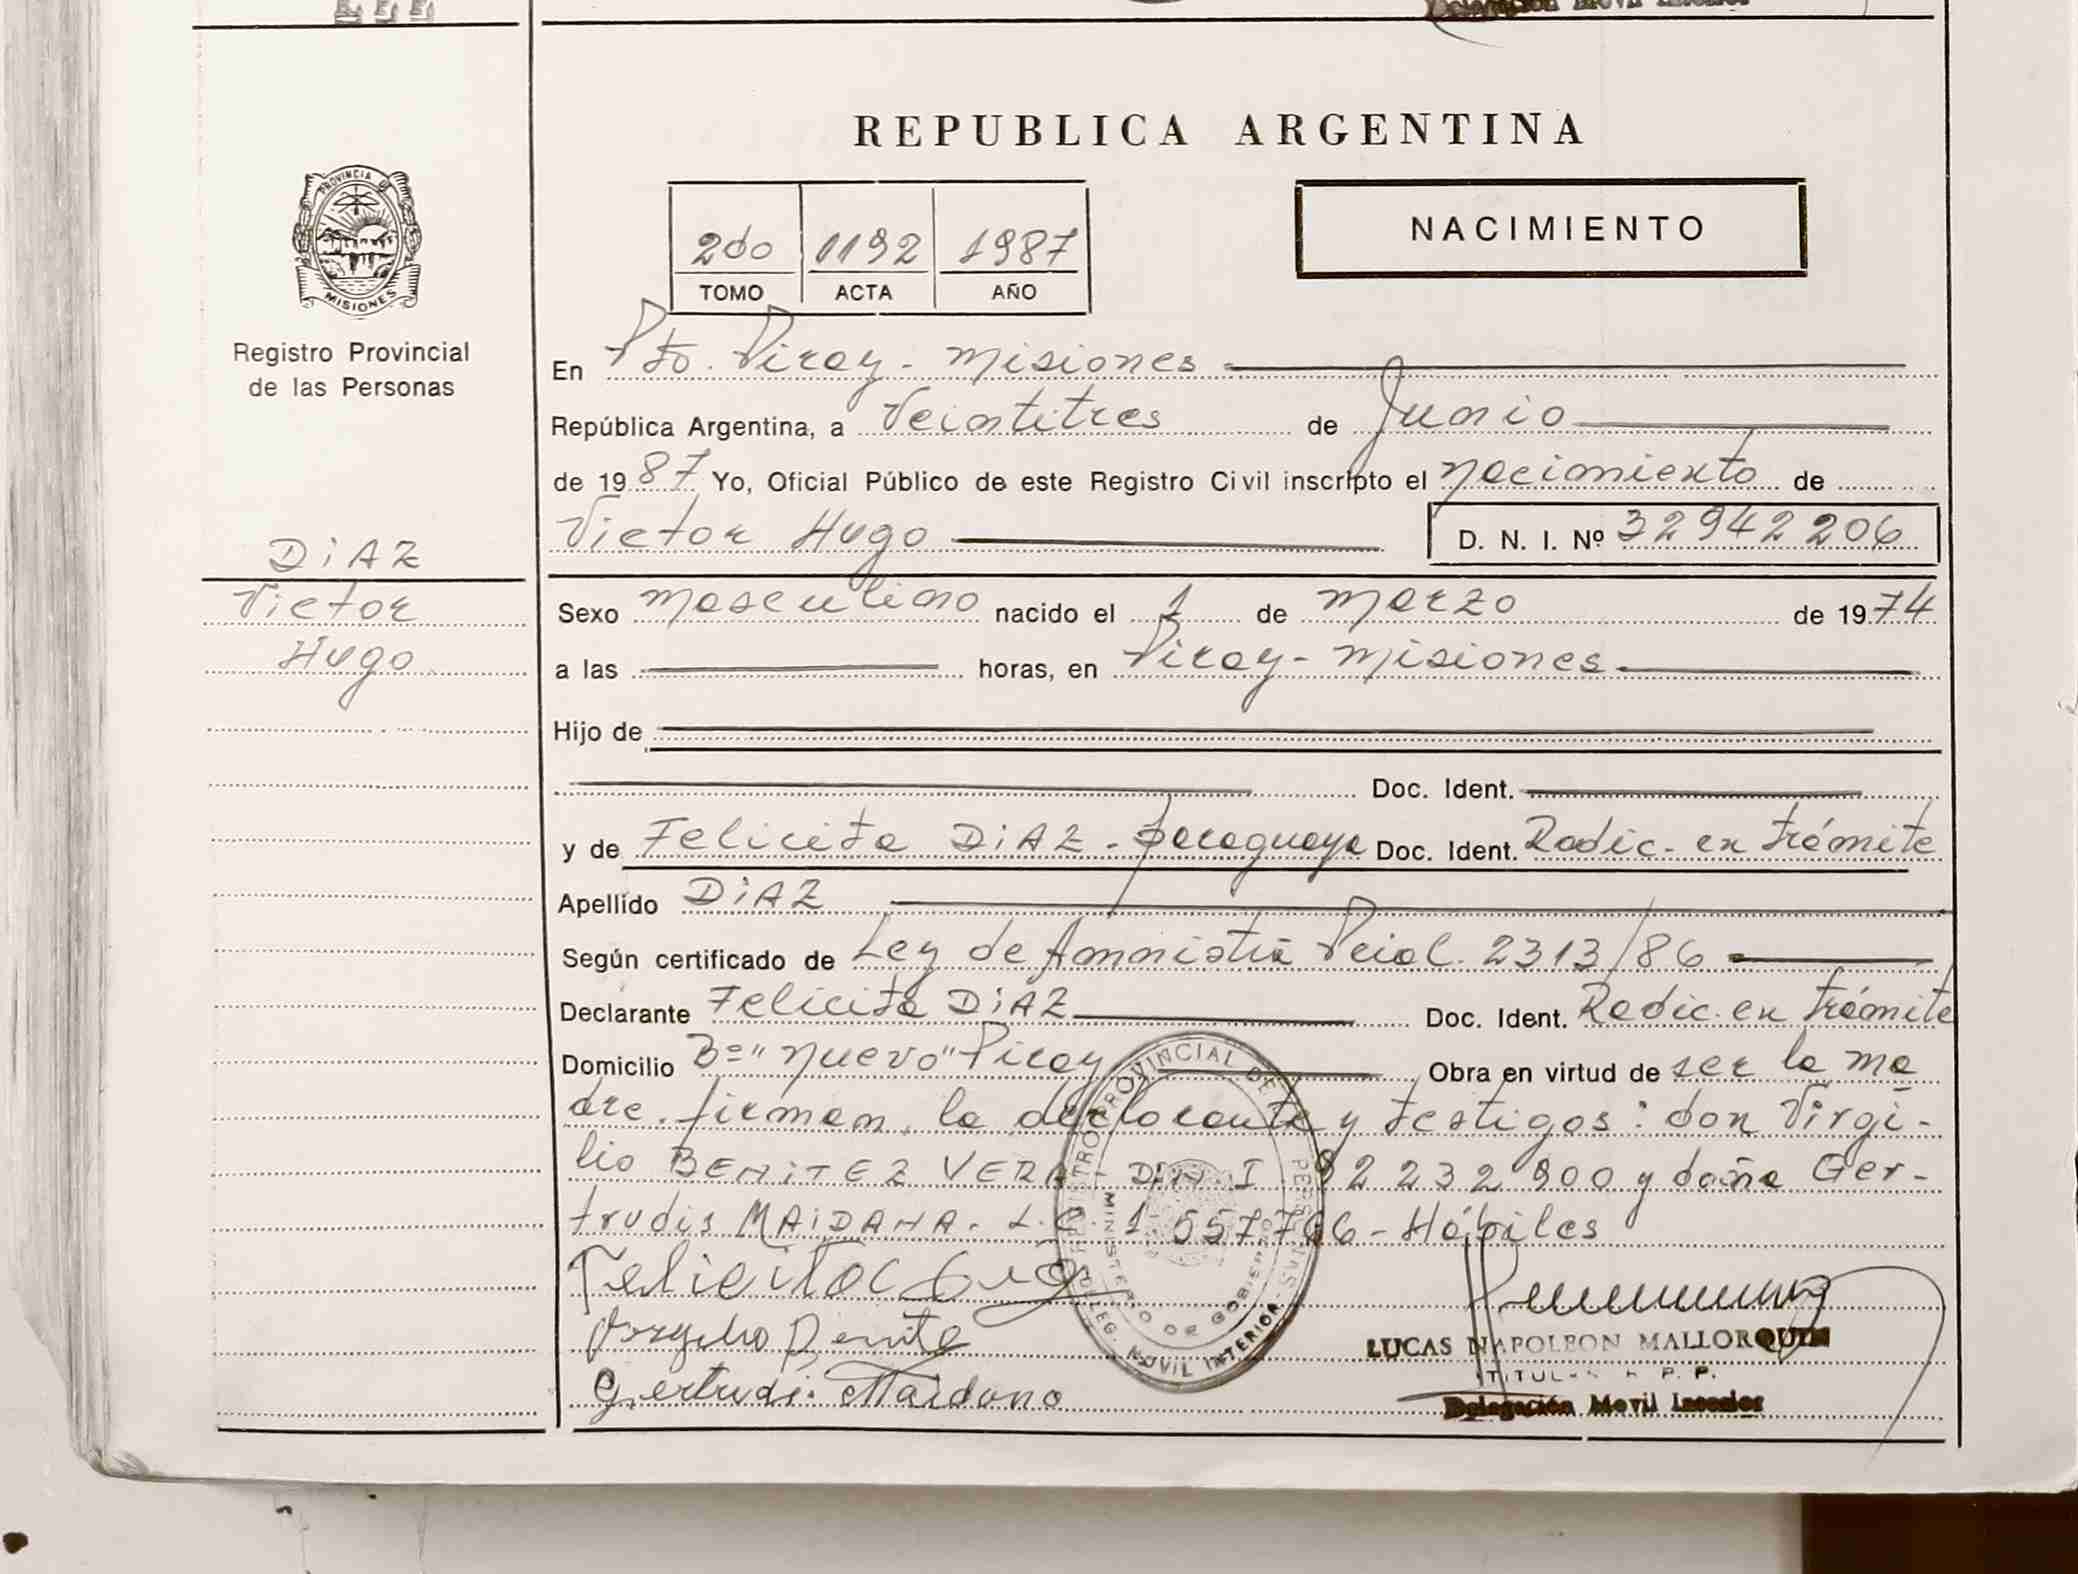 Delegación Movil Interior
REPUBLICA ARGENTINA
PROVINCIA DE
MISIONES
Registro Provincial
de las Personas
2do 1192 1987
TOMO ACTA AÑO
NACIMIENTO
En Pto. Piray - Misiones
República Argentina, a Veintitres de Junio
de 1987 Yo, Oficial Público de este Registro Civil inscripto el nacimiento de
Victor Hugo D. N. I. Nº 32942206
DiAZ
Victor
Hugo
Sexo masculino nacido el 1 de marzo de 1974
a las horas, en Piray - Misiones
Hijo de
Doc. Ident.
y de Felicita DiAZ - paraguaya Doc. Ident. Radic. en trámite
Apellido DiAZ
Según certificado de Ley de Amnistia Pcial. 2313/86
Declarante Felicita DiAZ Doc. Ident. Radic. en trámite
Domicilio Bº "Nuevo" Piray Obra en virtud de ser la ma
dre. firman, la declarante y testigos: don Virgi-
lio BENiTEZ VERA - D.N.I. 92 232 900 y doña Ger-
trudis MAiDANA - L.C. 1 557 766 - Hábiles
REGISTRO PROVINCIAL DE PERSONAS
MINISTERIO DE GOBIERNO
DELEG. MOVIL INTERIOR
Gertrudi. Maidana
LUCAS NAPOLEON MALLORQUIN
TITULAR R. P. P.
Delegación Movil Interior